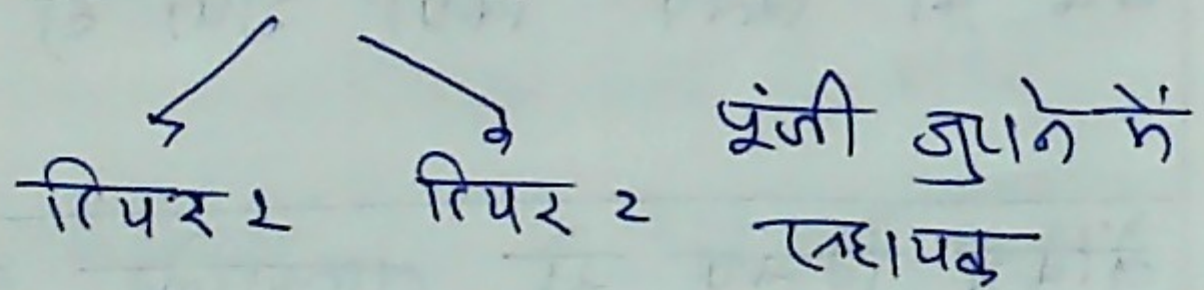 टियर 1 टियर 2
पूंजी जुटाने में
सहायक